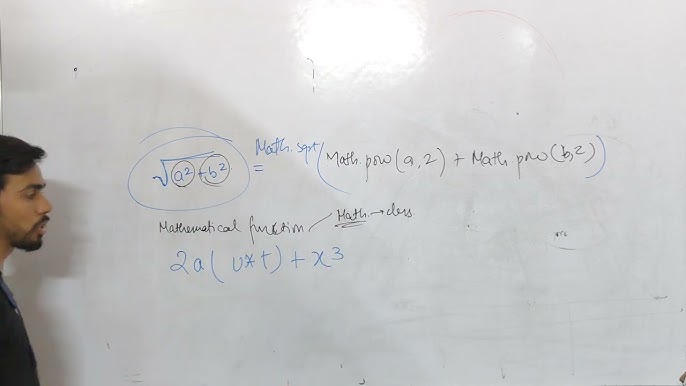 √a²+b² = Math.sqrt(Math.pow(a,2) + Math.pow(b,2))
Mathematical function / Math. → class
2a(v*t)+x³